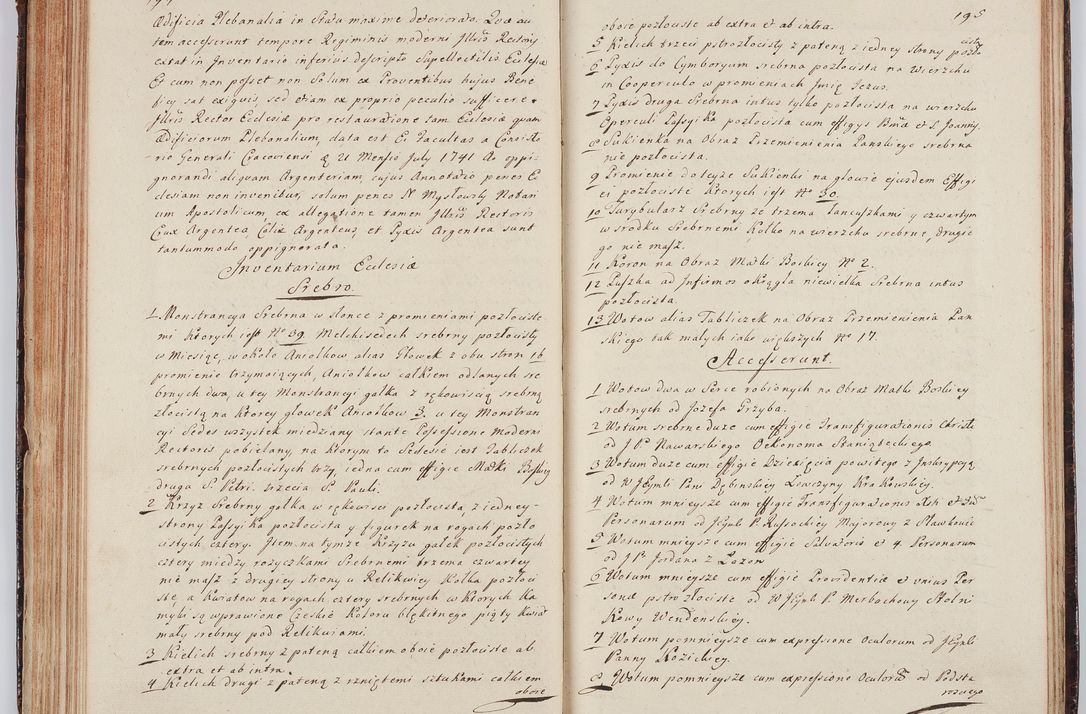 Ædificia Plebanalia in Statu maxime deteriorato. Quæ au
tem accesserunt tempore Regiminis moderni Jllris Rectoris
extat in Jnventario inferius descripto Supellectilis Ecclesiæ
Et cum non posset non Solum ex Proventibus hujus Bene
ficy sat exiguis, sed etiam ex proprio peculio sufficere
Jllris Rector Ecclesiæ pro restauratione tam Ecclesiæ quam
Ædificiorum Plebanalium, data est Ei facultas a Consisto
rio Generali Cracoviensi 21 Mensis July 1741 Ao oppi-
gnorandi aliquam Argenteriam, cujus Annotatio penes Ec
clesiam non invenitur, solum penes N Mysłowski Notari
um Apostolicum, ex allegatione tamen Jllris Rectoris
Crux Argentea, Calix Argenteus, et Pyxis Argentea sunt
tantummodo oppignorata.
Jnventarium Ecclesiæ
Srebro.
1 Monstrancya Srebrna w słońce z promieniami pozłociste
mi których jest No 39. Melchisedech srebrny pozłocisty
w Miesiącu, w około Aniołkow alias Głowek z obu stron 16
promienie trzymaiących, Aniołkow całkiem odlanych sre
brnych dwa, u tey Monstrancyi gałka z rękowiscią srebrną
złocistą na ktorey głowek Aniołkow 3. u tey Monstran
cyi Sedes wszystek miedziany stante Possessione Moderni
Rectoris pobielany, na ktorym to Sedesie iest Tabliczek
srebrnych pozłocistych trzy, iedna cum effigie Matki Boskiey
druga S. Petri. trzecia S. Pauli.
2 Krzyz Srebrny gałka w rękowisci pozłocista, z iedney
strony Passyika pozłocista y figurek na rogach pozło
cistych cztery. Jtem na tymze Krzyzu gałek pozłocistych
cztery miedzy rozyczkami Srebrnemi trzema czwartey
nie masz z drugiey strony u Relikwiey Kołka pozłoci
ste, a Kwiatow na rogach cztery srebrnych w ktorych Ka
myki są wprawione Czeskie Koloru błękitnego piąty Kwiat
mały srebrny pod Relikwiami.
3 Kielich srebrny z pateną całkiem oboie pozłociste ab
extra et ab intra.
4 Kielich drugi z pateną z rzniętemi sztukami całkiem
oboie
195
oboie pozłociste ab extra et ab intra.
5 Kielich trzeci pstrozłocisty z pateną z iedney strony pozło
cistą
6 Pyxis do Cymboryum srebrna pozłocista na wierzchu
in Cooperculo w promieniach Jmię Jezus.
7 Pyxis druga Srebrna intus tylko pozłocista na wierzchu
Operculi Passyika pozłocista cum effigys Bmæ et S. Joannis.
8 Sukienka na Obraz Przemienienia Pańskiego srebrna
nie pozłocista.
9 Promienie do teyze Sukienki na głowie ejusdem Effigi
ei pozłociste ktorych jest No 30.
10 Turybularz Srebrny ze trzema Łancuszkami y czwartym
w srodku Srebrnemi Kołko na wierzchu srebrne, drugie
go nie masz.
11 Koron na Obraz Matki Boskiey No 2.
12 Puszka ad Jnfirmos okrągła niewielka Srebrna intus
pozłocista.
13 Wotow alias Tabliczek na Obraz Przemienienia Pan
skiego tak małych iako większych No 17.
Accesserunt.
1 Wotow dwa w Serce robionych na Obraz Matki Boskiey
srebrnych od Jozefa Grzyba.
2 Wotum srebrne duze cum effigie Transfigurationis Christi
od J P Nawarskiego Oekonoma Staniąteckiego.
3 Wotum duze cum effigie Dziecięcia powitego z Jnskrypcyą
od W Jeymć Pani Dębinskiey Łowczyny Krakowskiey.
4 Wotum mnieysze cum effigie Transfigurationis Xsti et 3um
Personarum od Jeymć P. Russockiey Majorowy z Sławkowic
5 Wotum mnieysze cum effigie Salvatoris et 4 Personarum
od J P. Jordana z Łazon
6 Wotum mnieysze cum effigie Providentiæ et unius Per
sonæ pstrozłociste od W Jeymć P. Merbachowy Stolni
kowy Wendenskiey.
7 Wotum pomnieysze cum expressione Oculorum od Jeymć
Panny Kozickiey.
8 Wotum pomnieysze cum expressione Oculorum od Podsta
rosciego